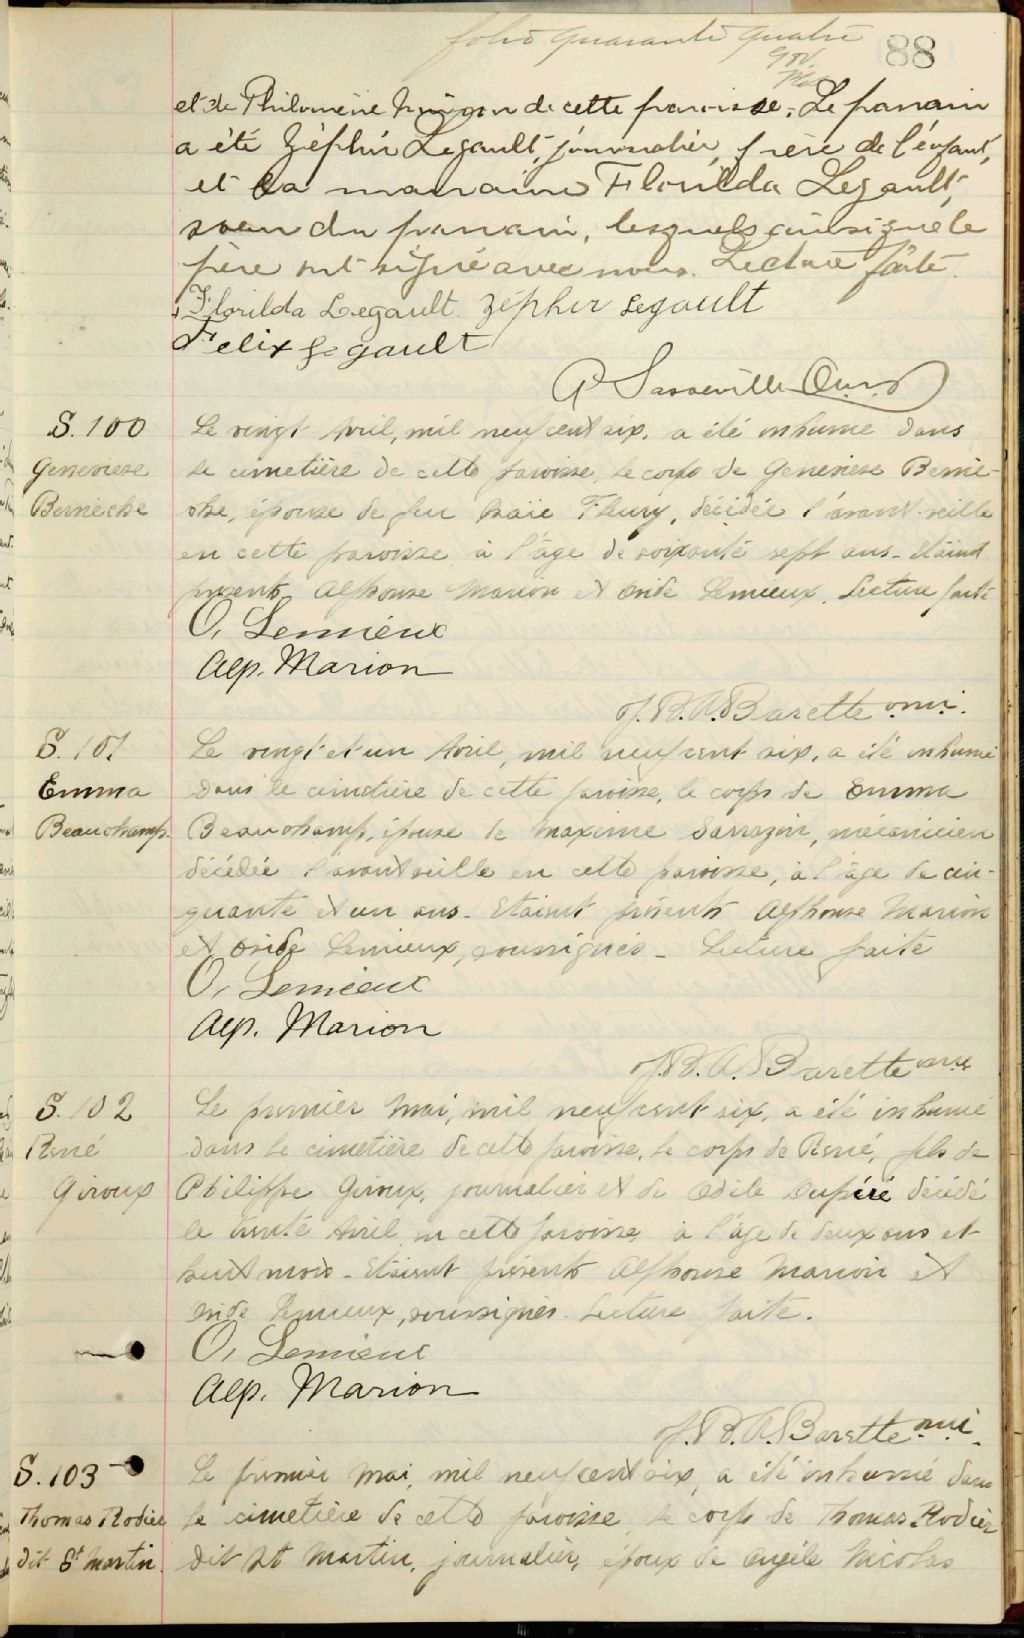 folio quarante quatre
88
et de Philomène de cette paroisse. Le parrain
a été Zéphir Legault, journalier, frère de l'enfant,
et la marraine Florilda Legault,
soeur du parrain, lesquels ainsi que le
père ont signé avec nous. Lecture faite.
Florilda Legault. Zéphir Legault
Felix Legault
P Sasseville Curé
S. 100
Genevieve
Bernèche
Le vingt Avril, mil neuf cent six, a été inhumé dans
le cimetière de cette paroisse, le corps de Genevieve Berne-
che, épouse de feu Isaïe Fleury, décédée l'avant-veille
en cette paroisse à l'âge de soixante sept ans - Etaient
présents Alphonse Marion et Ovide Lemieux. Lecture faite
O. Lemieux
Alp. Marion
J. B. A. Barette
S. 101
Emma
Beauchamp.
Le vingt et un Avril, mil neuf cent six, a été inhumé
dans le cimetière de cette paroisse, le corps de Emma
Beauchamp, épouse de Maxime Sarrazin, mécanicien
décédée l'avant veille en cette paroisse, à l'âge de cin-
quante et un ans - Etaient présents Alphonse Marion
et Ovide Lemieux, soussignés - Lecture faite
O. Lemieux
Alp. Marion
J. B. A. Barette
S. 102
René
Giroux
Le premier Mai, mil neuf cent six, a été inhumé
dans le cimetière de cette paroisse, le corps de René, fils de
Philippe Giroux, journalier et de Odile Dupéré décédé
le trente Avril en cette paroisse à l'âge de deux ans et
huit mois - Etaient présents Alphonse Marion et
Ovide Lemieux, soussignés. Lecture faite.
O. Lemieux
Alp. Marion
J. B. A. Barette
S. 103
Thomas Rodier
dit St Martin.
Le premier Mai, mil neuf cent six, a été inhumé dans
le cimetière de cette paroisse le corps de Thomas Rodier
dit St Martin, journalier, époux de Angèle Nicolas